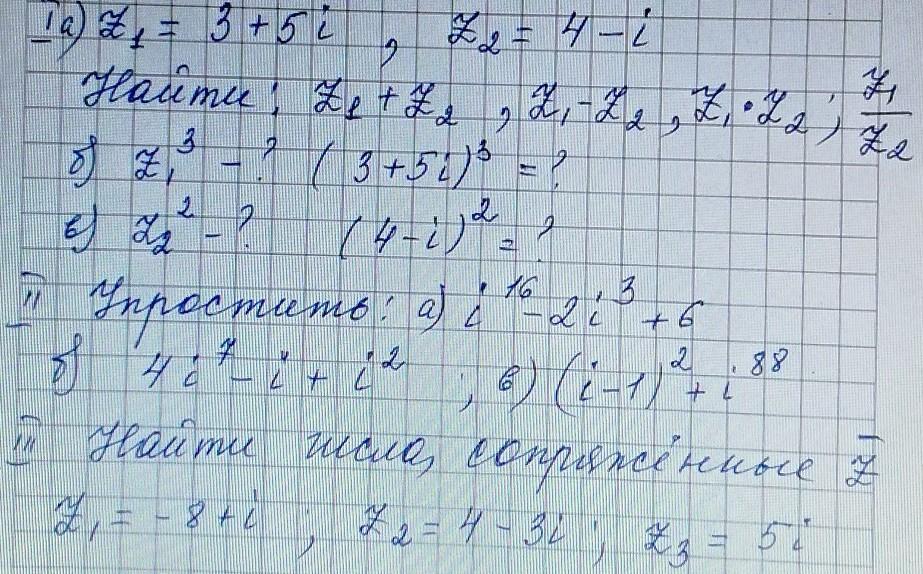 I а) z₁ = 3 + 5i , z₂ = 4 - i
Найти: z₁ + z₂ , z₁ - z₂ , z₁ · z₂ ; z₁/z₂
б) z₁³ - ? (3 + 5i)³ = ?
в) z₂² - ? (4 - i)² = ?
II Упростить: а) i¹⁶ - 2i³ + 6
б) 4i⁷ - i + i² ; в) (i - 1)² + i⁸⁸
III Найти числа, сопряжённые z̅
z₁ = -8 + i ; z₂ = 4 - 3i ; z₃ = 5i